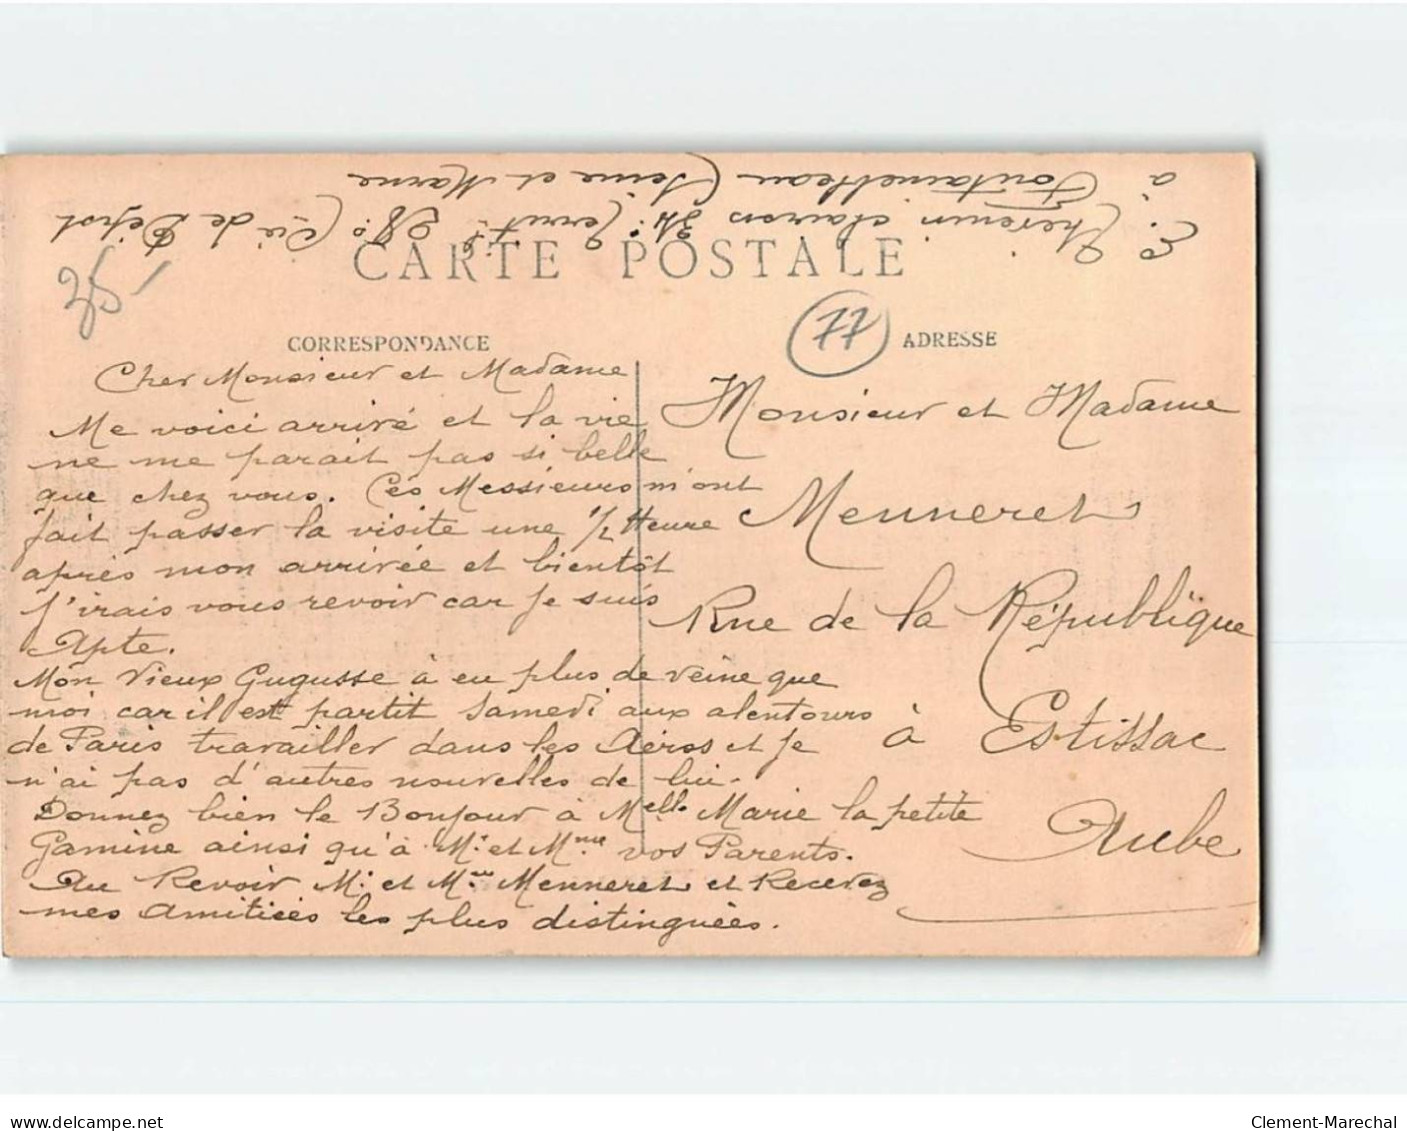 E. Thevenin clairon 34e Territ. 28e Cie de Dépot
à Fontainebleau (Seine et Marne
CARTE POSTALE
35-
77
CORRESPONDANCE
ADRESSE
Cher Monsieur et Madame
Me voici arrivé et la vie
ne me parait pas si belle
que chez vous. Ces Messieurs m'ont
fait passer la visite une 1/2 Heure
après mon arrivée et bientôt
j'irais vous revoir car je suis
Apte.
Mon Vieux Gugusse à eu plus de veine que
moi car il est partit Samedi aux alentours
de Paris travailler dans les Aéros et je
n'ai pas d'autres nouvelles de lui.
Donnez bien le Bonjour à Melle Marie la petite
Gamine ainsi qu'à Mr et Mme vos Parents.
Au Revoir Mr et Mme Menneret et Recevez
mes Amitiées les plus distinguées.
Monsieur et Madame
Menneret
Rue de la République
à Estissac
Aube
www.delcampe.net
Clement-Marechal